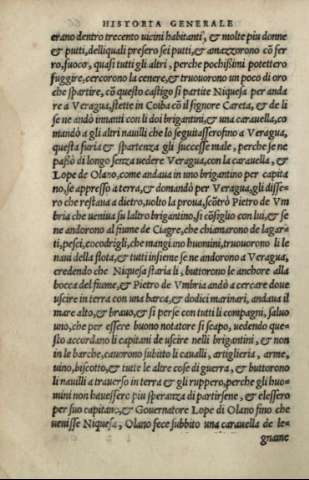 HISTORIA GENERALE
erano dentro trecento uicini habitanti, & molte piu donne
& putti, delliquali presero sei putti, & amazzorono cõ fer
ro, fuoco, quasi tutti gli altri, perche pochissimi potettero
fuggire, cercorono la cenere, & truouorono un poco di oro
che spartire, cõ questo castigo si partite Niquesa per anda
re a Veragua, stette in Coiba cõ il signore Careta, & de li
se ne andò innanti con li doi brigantini, & una carauella, co
mandò a gli altri nauili che lo seguitassero fino a Veragua,
questa furia & spartenza gli successe male, perche se ne
passò di longo senza uedere Veragua, con la carauella, &
Lope de Olano, come andaua in uno brigantino per capita
no, se appressò a terra, & domandò per Veragua, gli disse-
ro che restaua a dietro, uolto la proua, scõtrò Pietro de Vm
bria che ueniua su laltro brigantino, si cõsigliò con lui, & se
ne andorono al fiume de Ciagre, che chiamarono de lagar-
ti, pesci, cocodrigli, che mangiano huomini, truouorono li le
naui della flota, & tutti insieme se ne andorono a Veragua,
credendo che Niquesa staria li, buttorono le anchore alla
bocca del fiume, & Pietro de Vmbria andò a cercare doue
uscire in terra con una barca, & dodici marinari, andaua il
mare alto, & brauo, & si perse con tutti li compagni, saluo
uno, che per essere buono notatore si scapo, uedendo que-
sto accordano li capitani de uscire nelli brigantini, & non
in le barche, cauorono subito li caualli, artigleria, arme,
uino, biscotto, & tutte le altre cose di guerra, & buttorono
li nauili a trauerso in terra & gli ruppero, perche gli huo-
mini non hauessero piu speranza di partirsene, & elessero
per suo capitano, & Gouernatore Lope di Olano fino che
uenisse Niquesa, Olano fece subbito una carauella de le-
gname